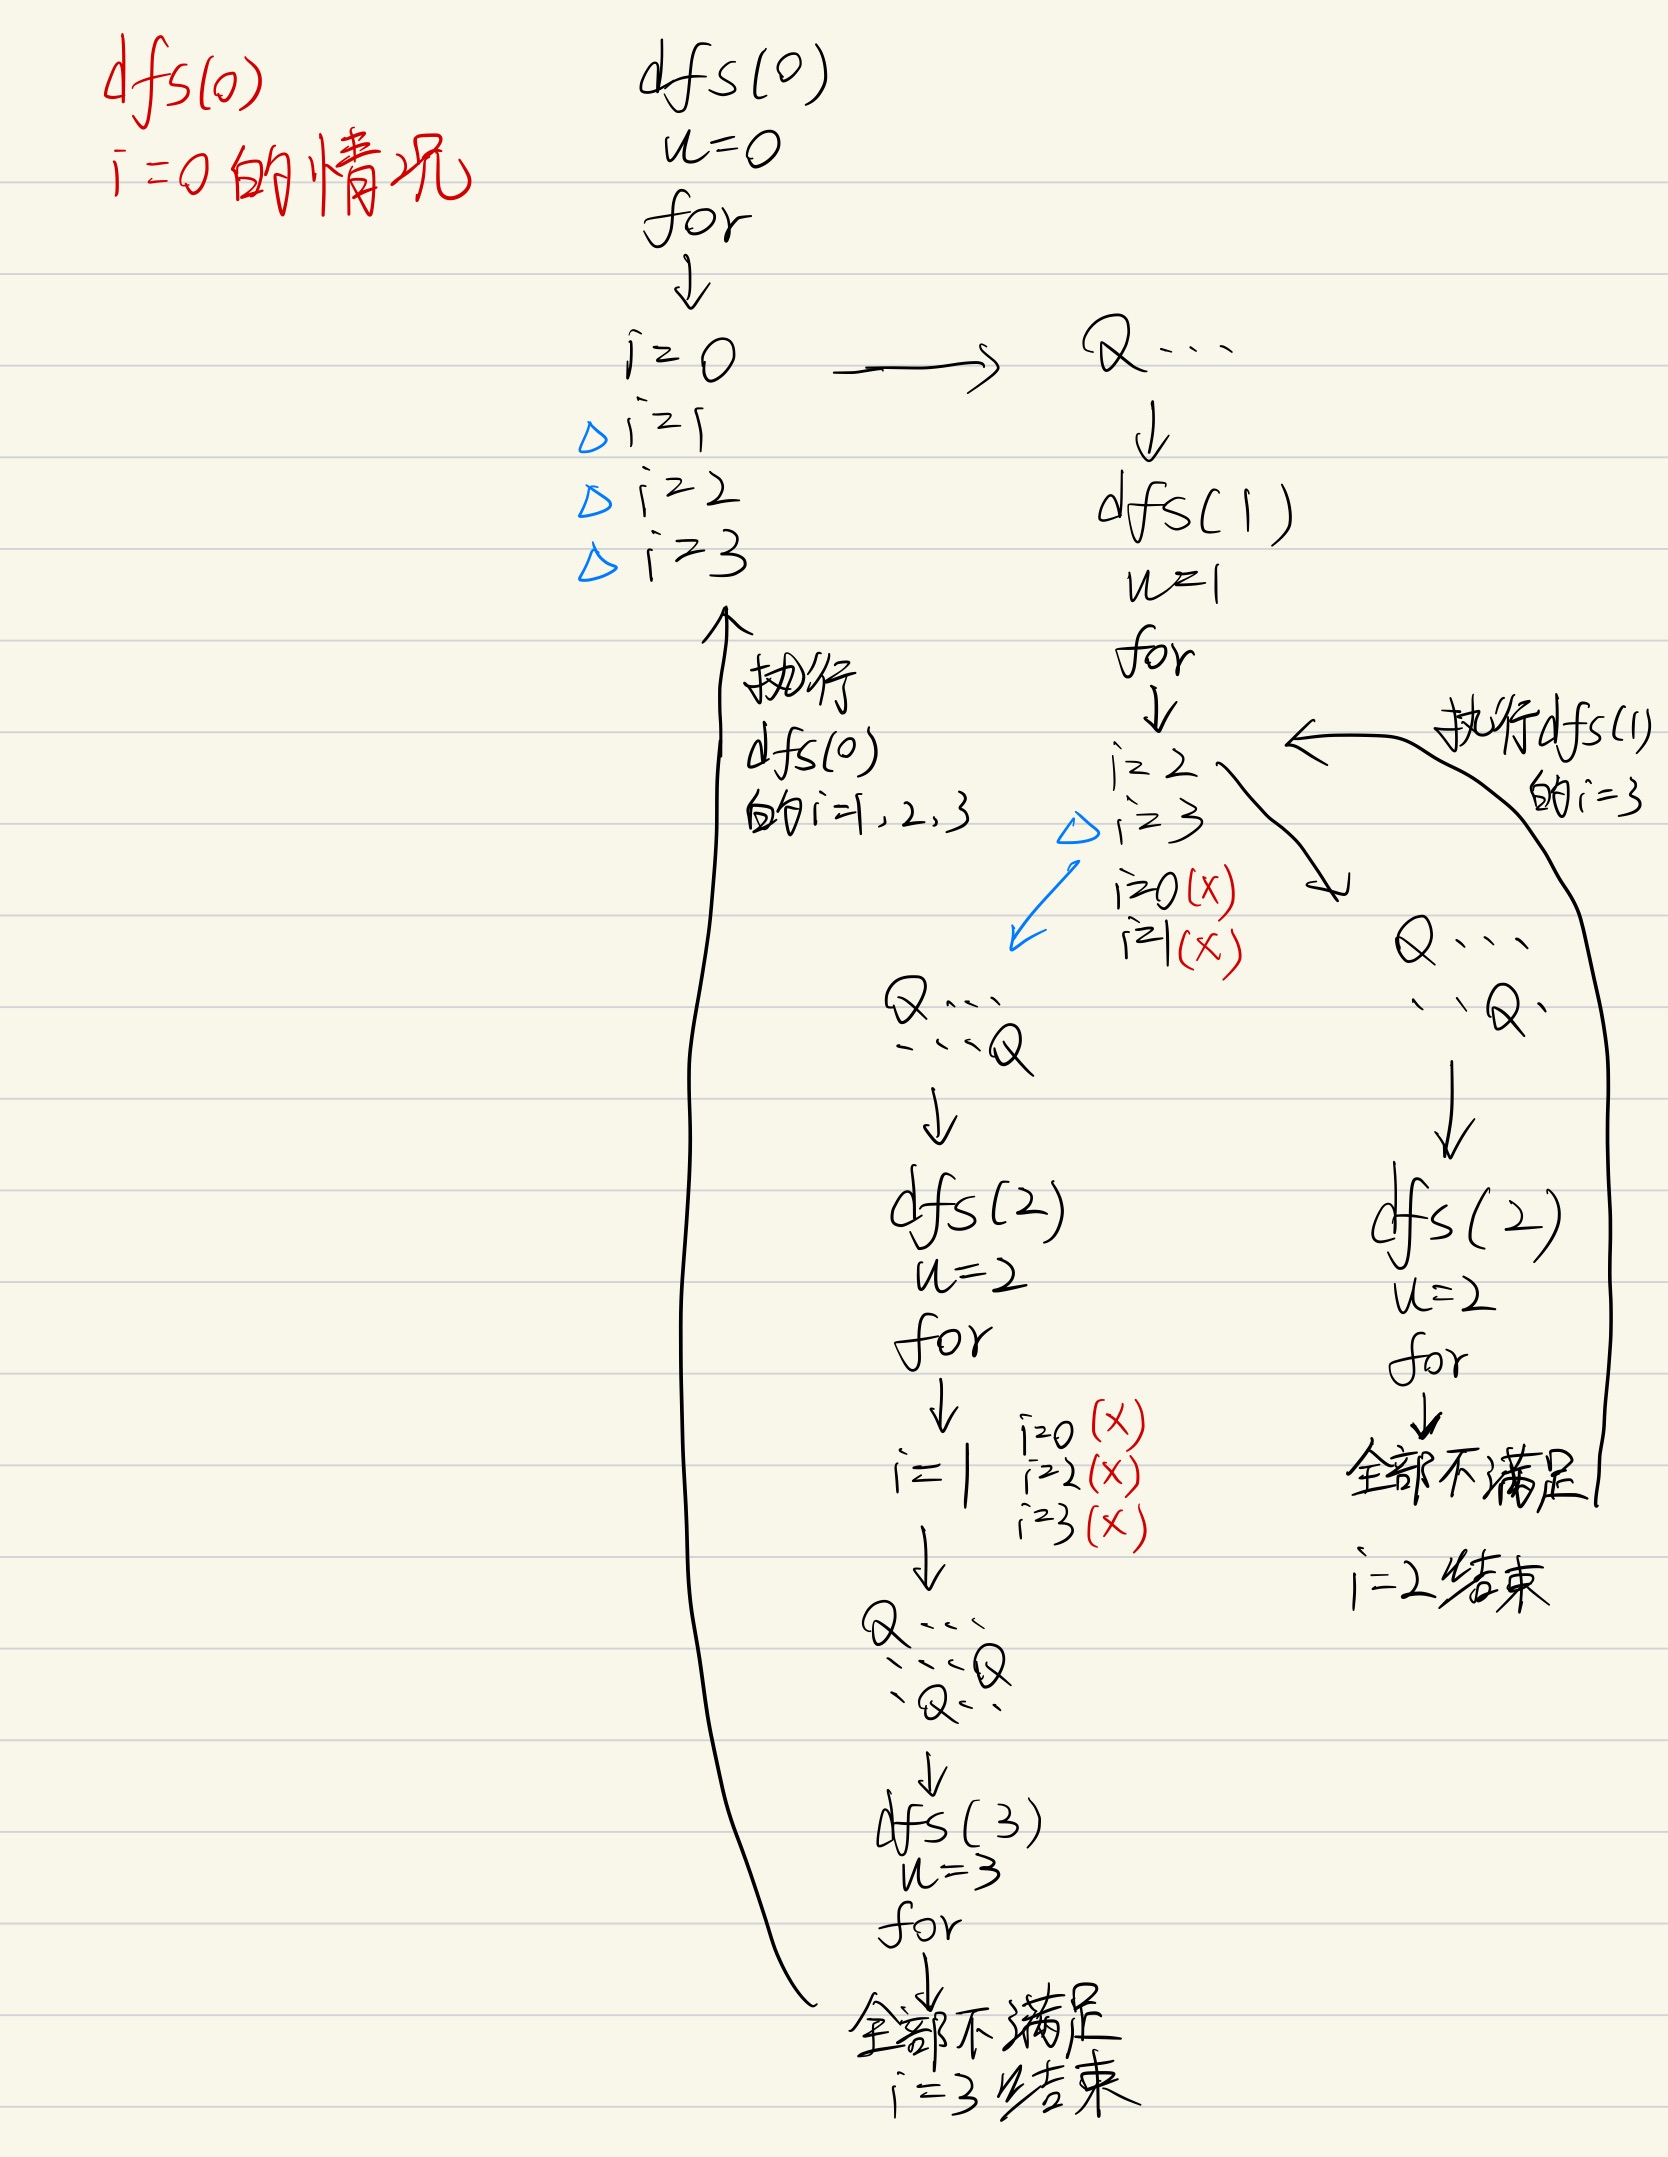 dfs(0)
i=0的情况
dfs(0)
u=0
for
i=0
i=1
i=2
i=3
Q...
dfs(1)
u=1
for
i=2
i=3
i=0(x)
i=1(x)
执行
dfs(0)
的i=1,2,3
执行dfs(1)
的i=3
Q...
..Q.
dfs(2)
u=2
for
全部不满足
i=2结束
Q...
...Q
dfs(2)
u=2
for
i=1
i=0(x)
i=2(x)
i=3(x)
Q...
...Q
.Q..
dfs(3)
u=3
for
全部不满足
i=3结束